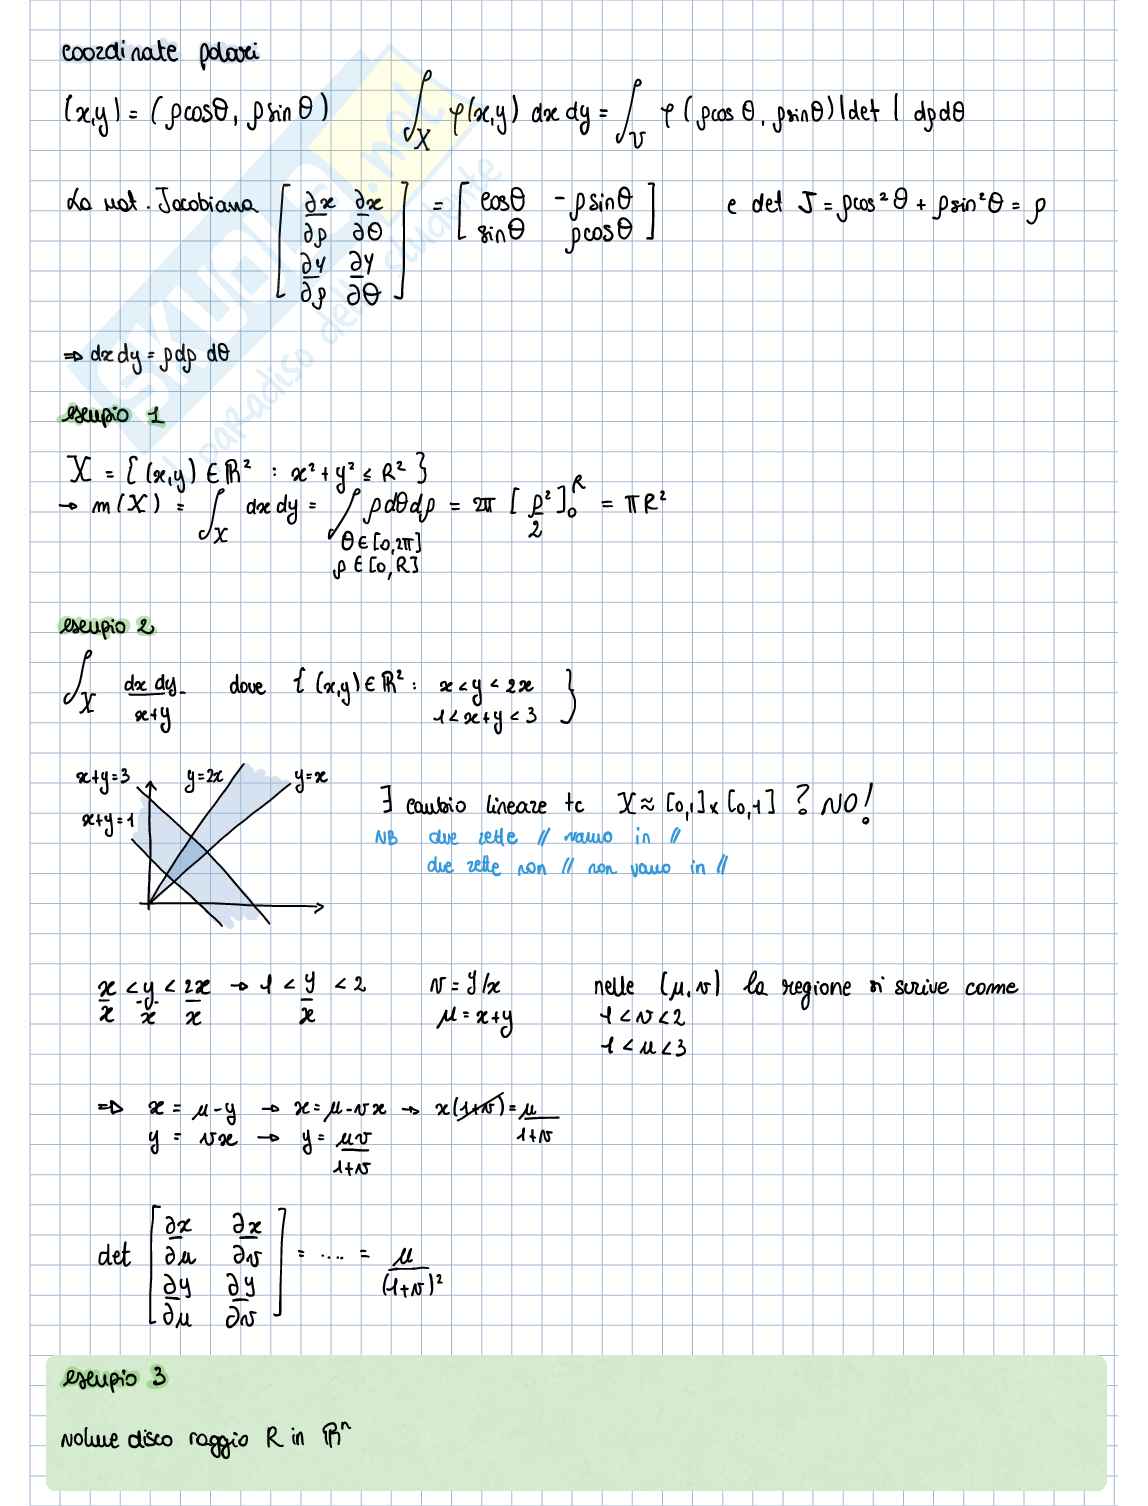 coordinate polari
(x,y) = (ρcosθ, ρsinθ) ∫_X φ(x,y) dx dy = ∫_U φ(ρcosθ, ρsinθ)|det| dρdθ
La mat. Jacobiana [∂x/∂ρ ∂x/∂θ ; ∂y/∂ρ ∂y/∂θ] = [cosθ -ρsinθ ; sinθ ρcosθ] e det J = ρcos²θ + ρsin²θ = ρ
⇒ dx dy = ρdρ dθ
esempio 1
X = {(x,y) ∈ ℝ² : x²+y² ≤ R²}
→ m(X) = ∫_X dx dy = ∫ ρdθdρ = 2π [ρ²/2]₀^R = πR²
θ ∈ [0,2π]
ρ ∈ [0,R]
esempio 2
∫_X dx dy/x+y dove {(x,y) ∈ ℝ² : x<y<2x
1<x+y<3}
x+y=3 y=2x y=x
x+y=1
∃ cambio lineare tc X ≈ [0,1]x[0,1] ? NO!
NB due rette // vanno in //
due rette non // non vanno in //
x/x < y/x < 2x/x → 1 < y/x < 2 v = y/x nelle (μ,v) la regione si scrive come
μ = x+y 1<v<2
1<μ<3
⇒ x = μ-y → x = μ-vx → x(1+v) = μ/1+v
y = vx → y = μv/1+v
det [∂x/∂μ ∂x/∂v ; ∂y/∂μ ∂y/∂v] = .... = μ/(1+v)²
esempio 3
volume disco raggio R in ℝⁿ
SKUOLA.net
il paradiso dello studente